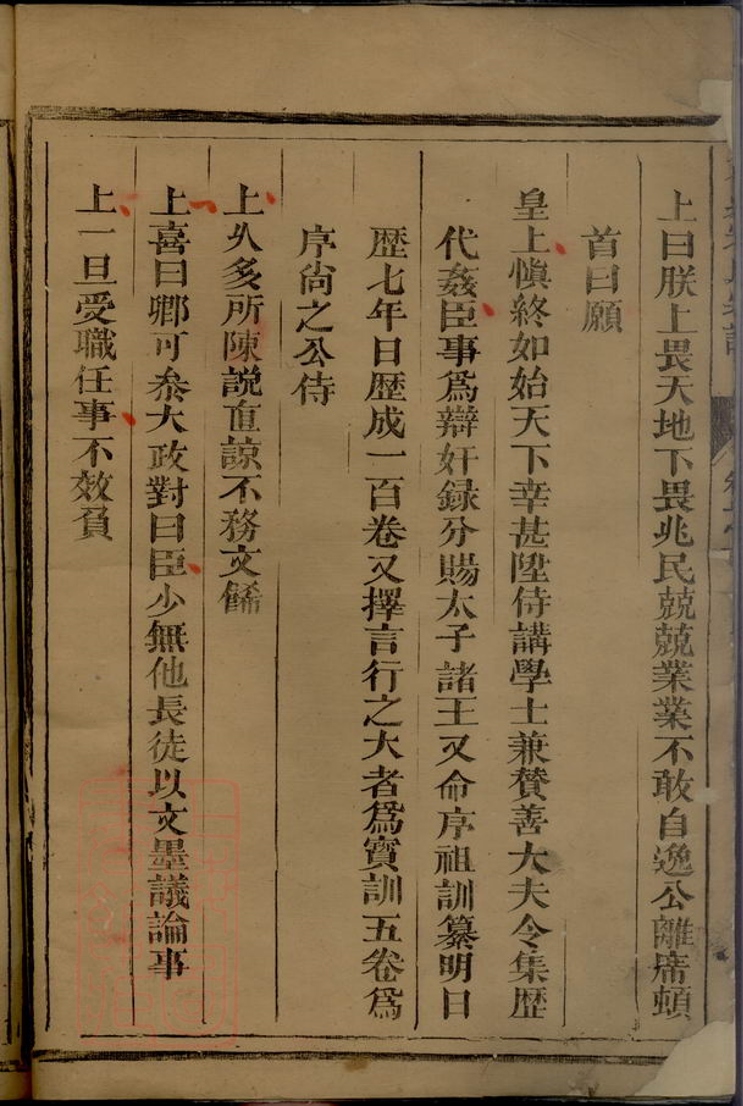 上曰朕上畏天地下畏兆民兢兢業業不敢自逸公離席頓
首曰願
皇上愼終如始天下幸甚陞侍講學士兼贊善大夫令集歷
代姦臣事爲辯奸録分賜太子諸王又命序祖訓纂明日
歷七年日歷成一百卷又擇言行之大者爲寳訓五卷爲
序尙之公侍
上乆多所陳説直諒不務文餙
上喜曰卿可叅大政對曰臣少無他長徒以文墨議論事
上一旦受職任事不效負